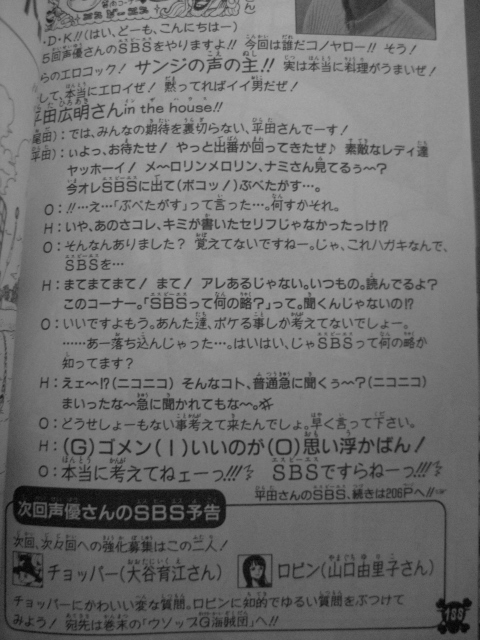 ・D・K!!(はい、どーも、こんにちはー)
5回声優さんのSBSをやりますよ!! 今回は誰だコノヤロー!! そう!
らのエロコック! サンジの声の主!! 実は本当に料理がうまいぜ!
して、本当にエロいぜ! 黙ってればイイ男だぜ!
平田広明さんin the house!!
(尾田):では、みんなの期待を裏切らない、平田さんでーす!
(平田):いよっ、お待たせ! やっと出番が回ってきたぜ♪ 素敵なレディ達
ヤッホーイ! メ〜ロリンメロリン、ナミさん見てるぅ〜?
今オレSBSに出て(ボコッ!)ぶべたがす…。
O:!!…え…「ぶべたがす」って言った…。何すかそれ。
H:いや、あのさコレ、キミが書いたセリフじゃなかったっけ!?
O:そんなんありました? 覚えてないですねー。じゃ、これハガキなんで、
SBSを…
H:まてまてまて! まて! アレあるじゃない。いつもの。読んでるよ?
このコーナー。「SBSって何の略?」って。聞くんじゃないの!?
O:いいですよもう。あんた達、ボケる事しか考えてないでしょー。
……あー落ち込んじゃった…。はいはい、じゃSBSって何の略か
知ってます?
H:えェ〜!?(ニコニコ) そんなコト、普通急に聞くぅ〜?(ニコニコ)
まいったな〜急に聞かれてもな〜。
O:どうせしょーもない事考えて来たんでしょ。早く言って下さい。
H:(G)ゴメン(I)いいのが(O)思い浮かばん!
O:本当に考えてねェーっ!!! SBSですらねーっ!!!
平田さんのSBS、続きは206Pへ!!
次回声優さんのSBS予告
次回、次々回への強化募集はこの二人!
チョッパー(大谷育江さん) ロビン(山口由里子さん)
チョッパーにかわいい変な質問。ロビンに知的でゆるい質問をぶつけて
みよう! 宛先は巻末の「ウソップG海賊団」へ!!
188